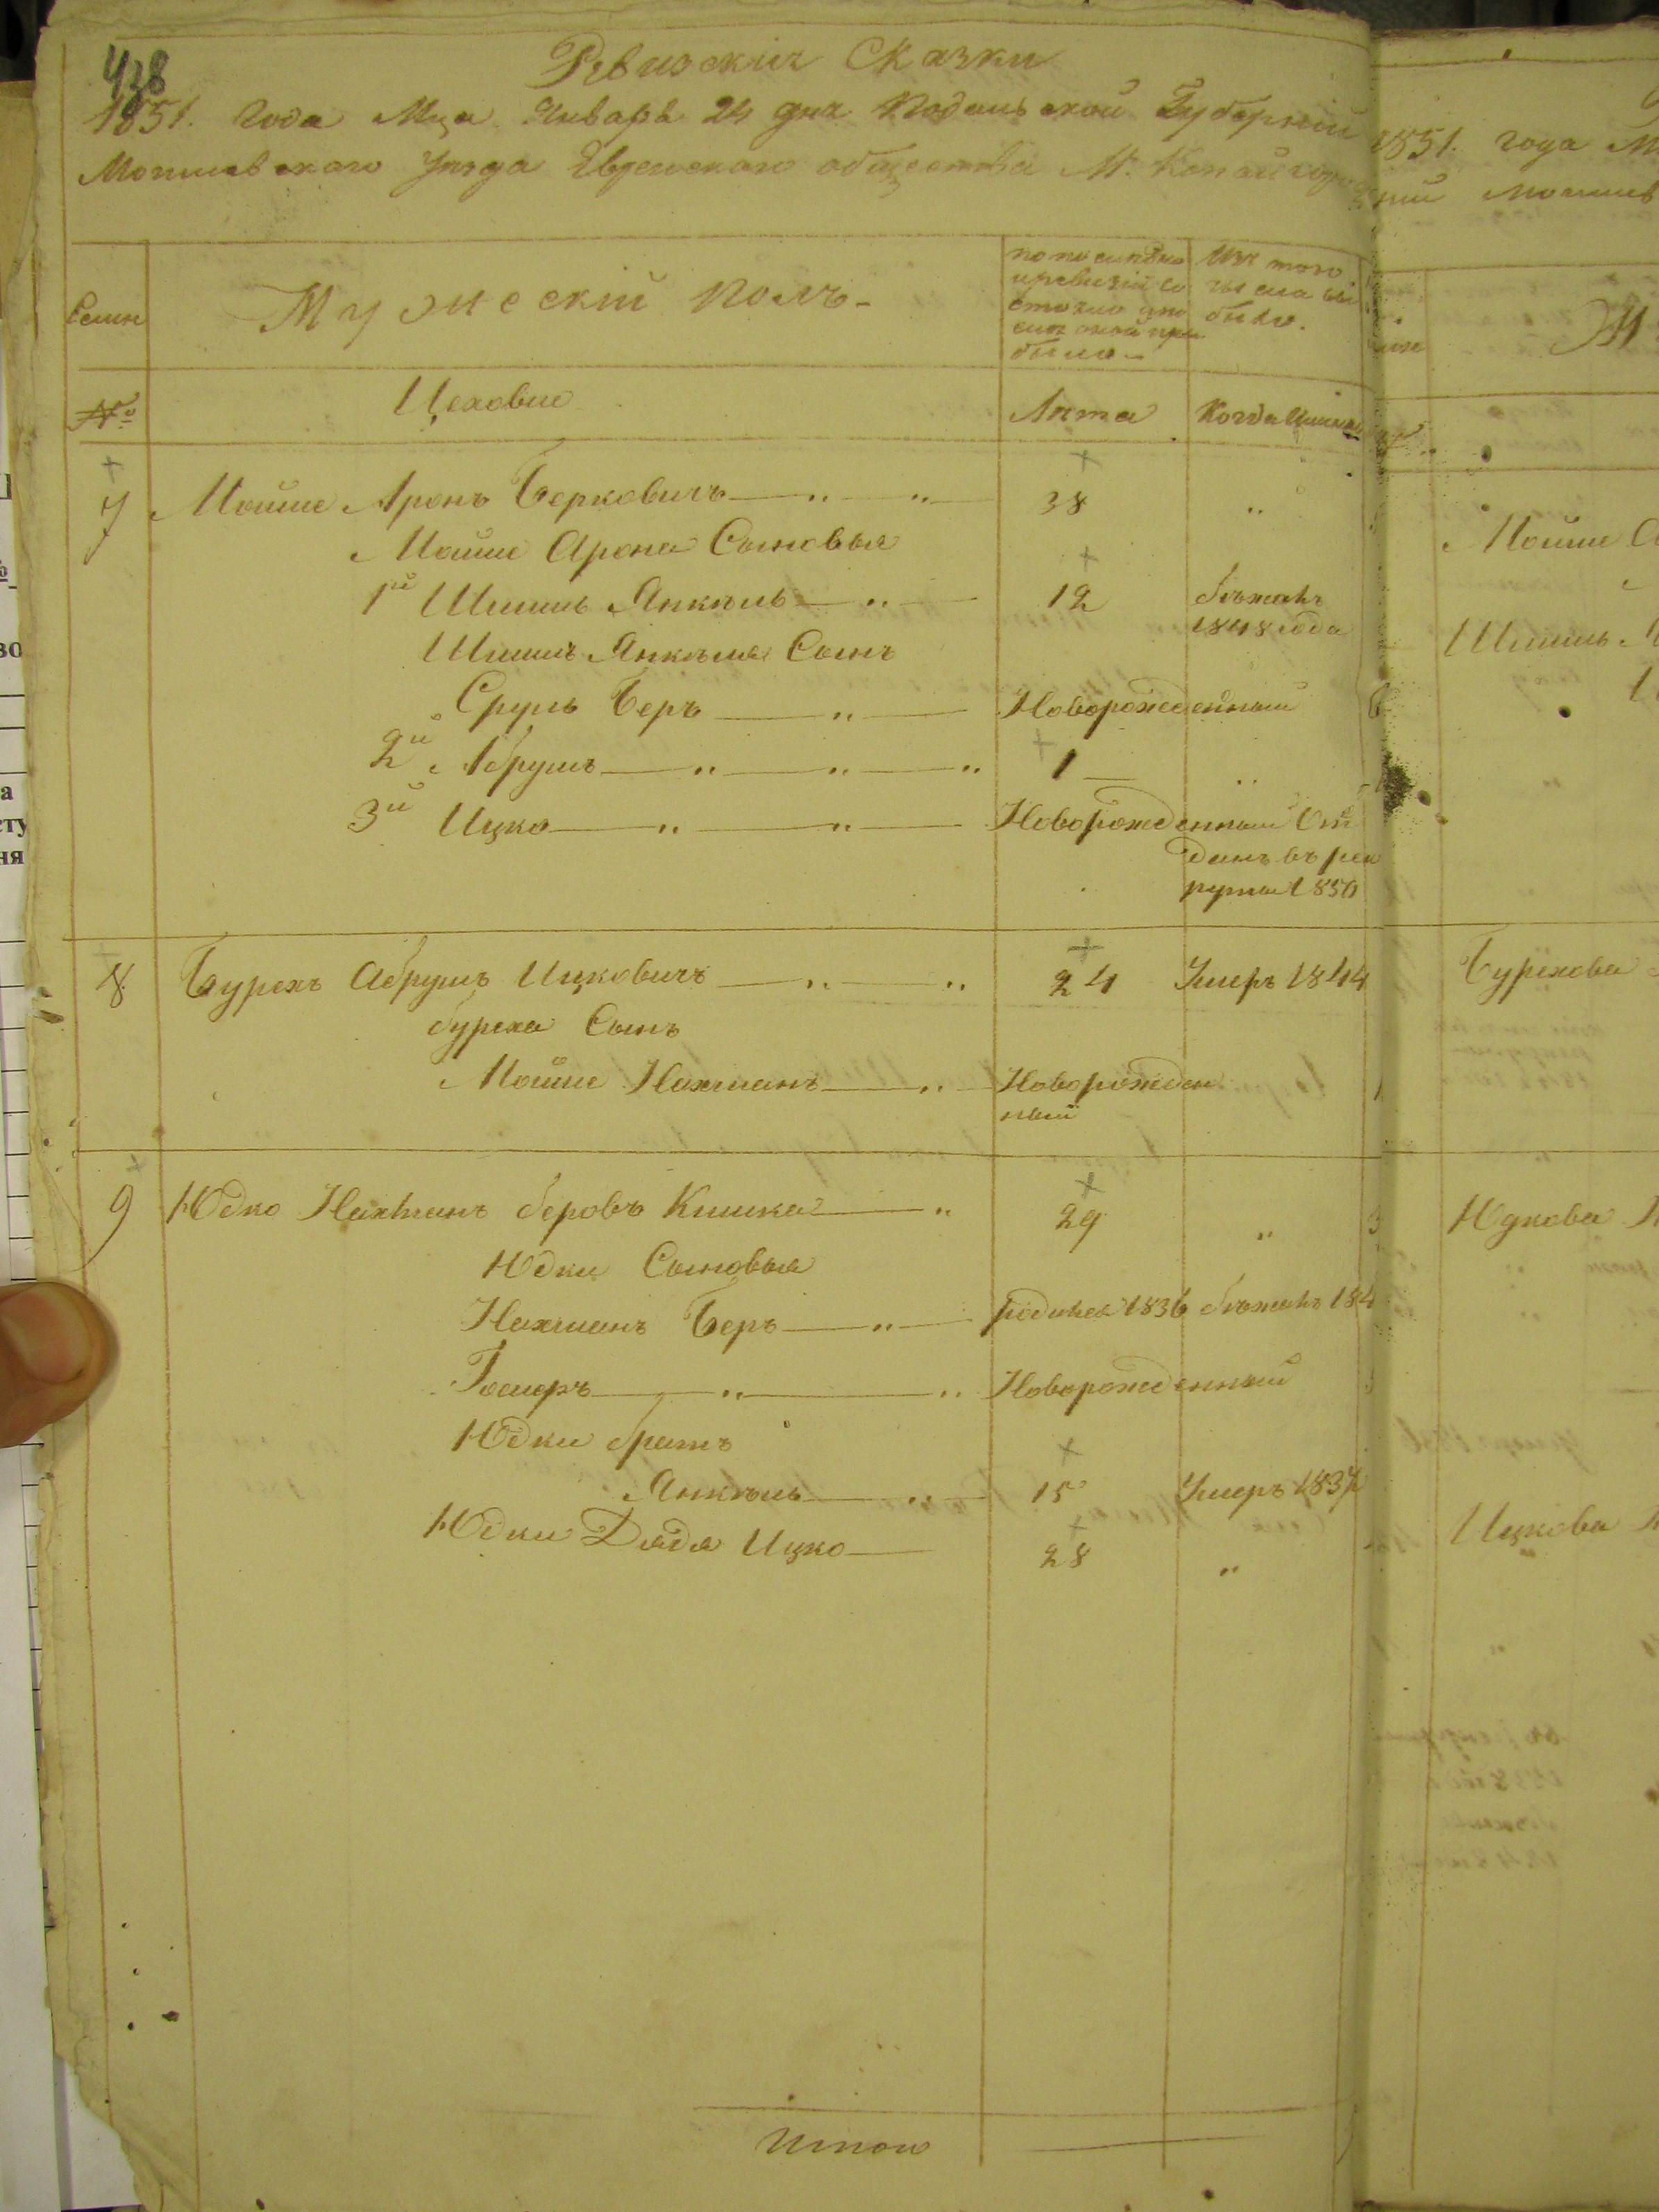 438
Ревизския Сказки
1851. Года Мца Января 24 дня Подольской Губернии
Могилевского Уезда Еврейского общества М. Копайгор
Семии
Мужеский полъ
по последнюю ревизий со стояло и по сле оной при было
Изъ того числа вы было.
№
Цеховые
Лѣта
Когда Имено
7 Мойше Аронъ Берковичъ 38
Мойше Арона Сыновья
1й Шмиль Янкель 12 бѣжалъ 1848 года
Шмиль Янкеля Сынъ
Сруль Беръ Новорожденный
2й Абрумъ 1
3й Ицко Новорожденный От
данъ въ рек
руты 1850
8 Бурехъ Абрумъ Ицковичъ 24 Умеръ 1844
буреха Сынъ
Мойше Нахманъ Новорожден
ный
9 Юдко Нахманъ беровъ Кишка 29
Юдки Сыновья
Нахманъ Беръ родился 1836 бѣжалъ 184
Госмеръ Новорожденный
Юдки братъ
Янкель 15 Умеръ 1837
Юдки Дядя Ицко 28
Итого
1851. года М
Могилев
Мойше А
Шмиль
Бурехова
Юдкова
Ицкова